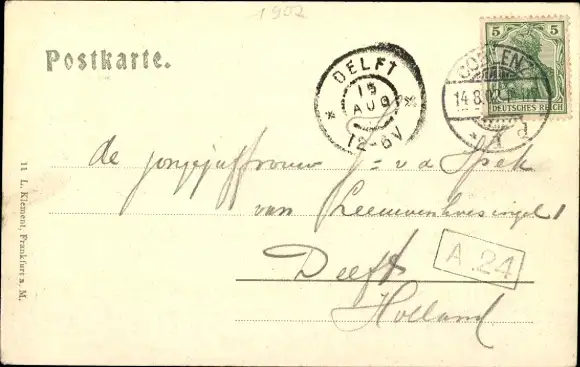 1902
Postkarte.
DELFT
15
AUG
12-6V
5 5
DEUTSCHES REICH
14.8.02
d
de jongejuffrouw v d Spek
van Leeuwenhoeksingel 1
Delft
Holland
A.24
11 L. Klement, Frankfurt a. M.